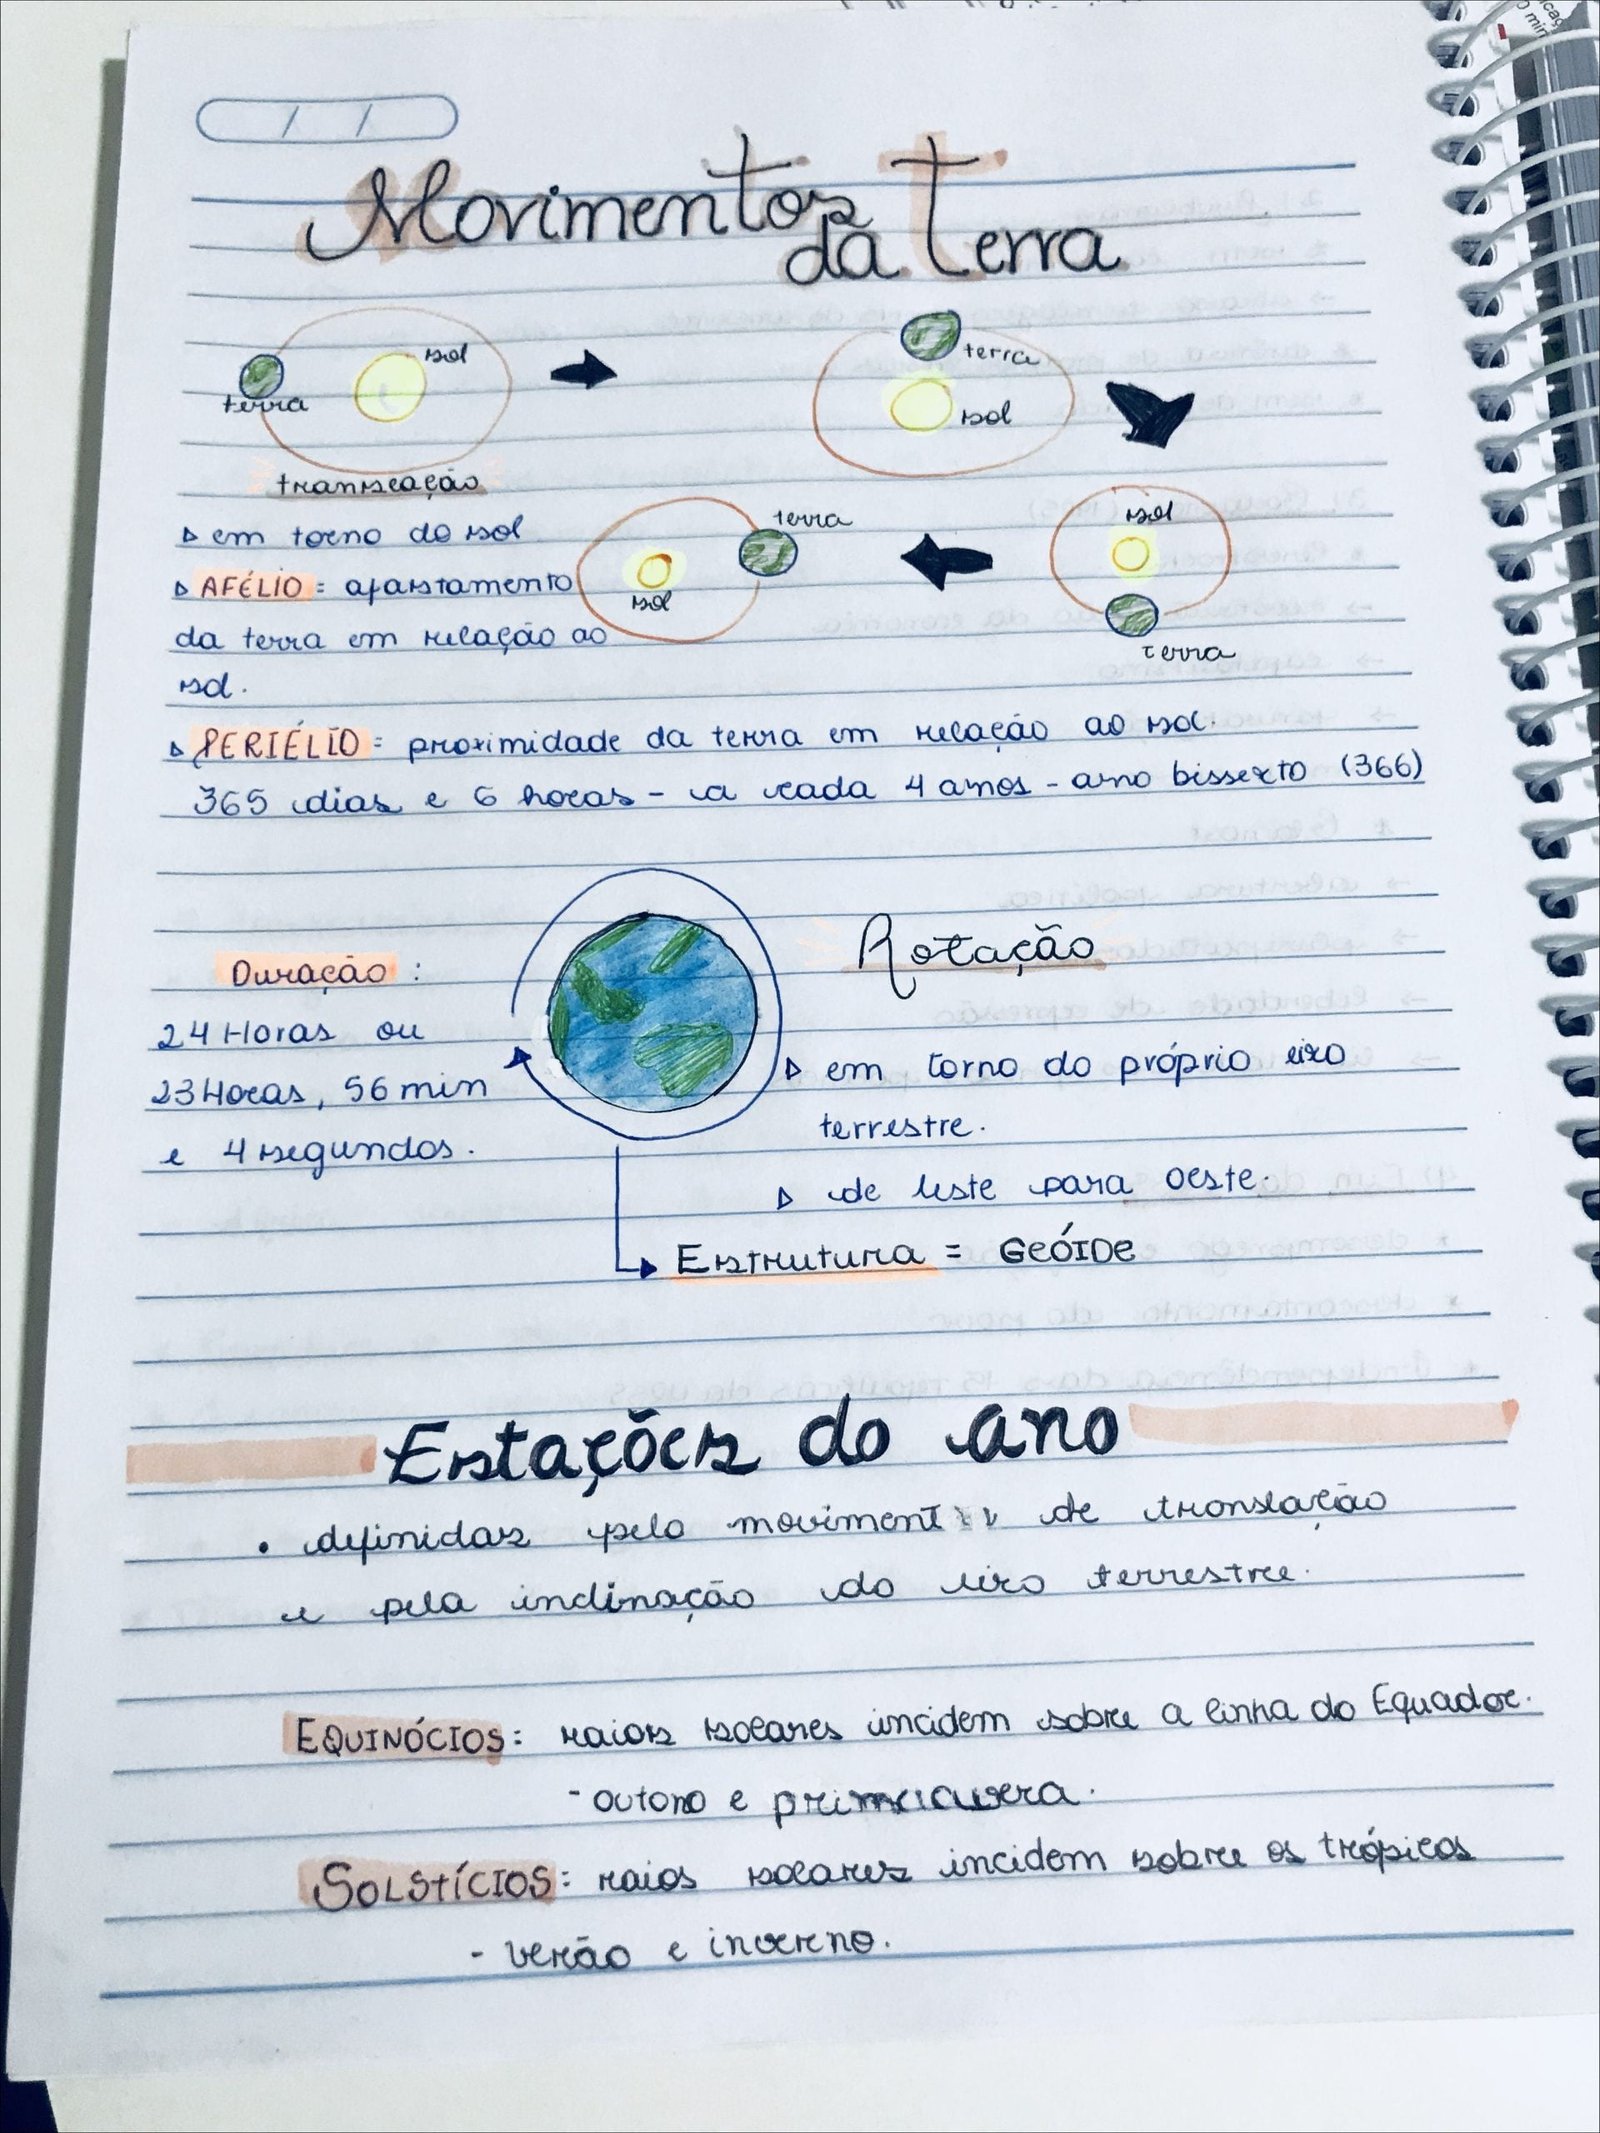 Movimentos
da Terra
sol
terra
terra
sol
translação
▹ em torno do sol
terra
sol
sol
terra
▹ AFÉLIO = afastamento
da terra em relação ao
sol.
▹ PERIÉLIO = proximidade da terra em relação ao sol.
365 dias e 6 horas - a cada 4 anos - ano bissexto (366)
Duração :
24 Horas ou
23 Horas, 56 min
e 4 segundos.
Rotação
▹ em torno do próprio eixo
terrestre.
▹ de leste para oeste.
Estrutura = GEÓIDE
Estações do ano
• definidas pelo de translação
e pela inclinação do eixo terrestre.
EQUINÓCIOS: raios solares incidem sobre a linha do Equador.
- outono e primavera.
SOLSTÍCIOS: raios solares incidem sobre os trópicos
- verão e inverno.